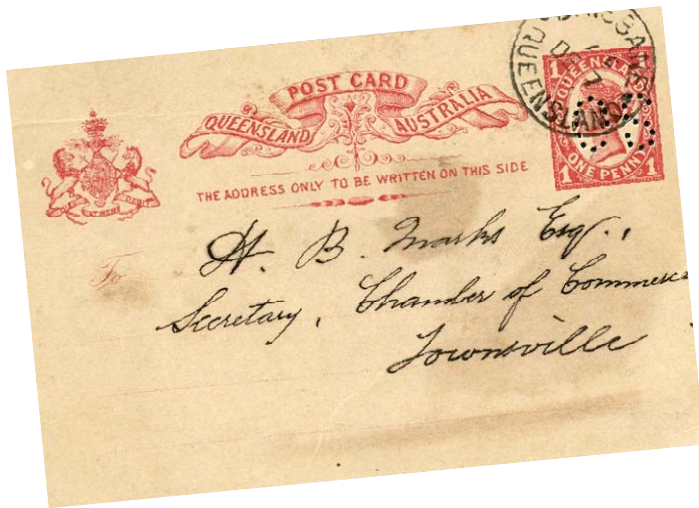 POST CARD
QUEENSLAND AUSTRALIA
THE ADDRESS ONLY TO BE WRITTEN ON THIS SIDE
QUEENSLAND
1 QUEENSLAND
1 ONE PENNY 1
To
H. B. Marks Esq.,
Secretary, Chamber of Commerce
Townsville